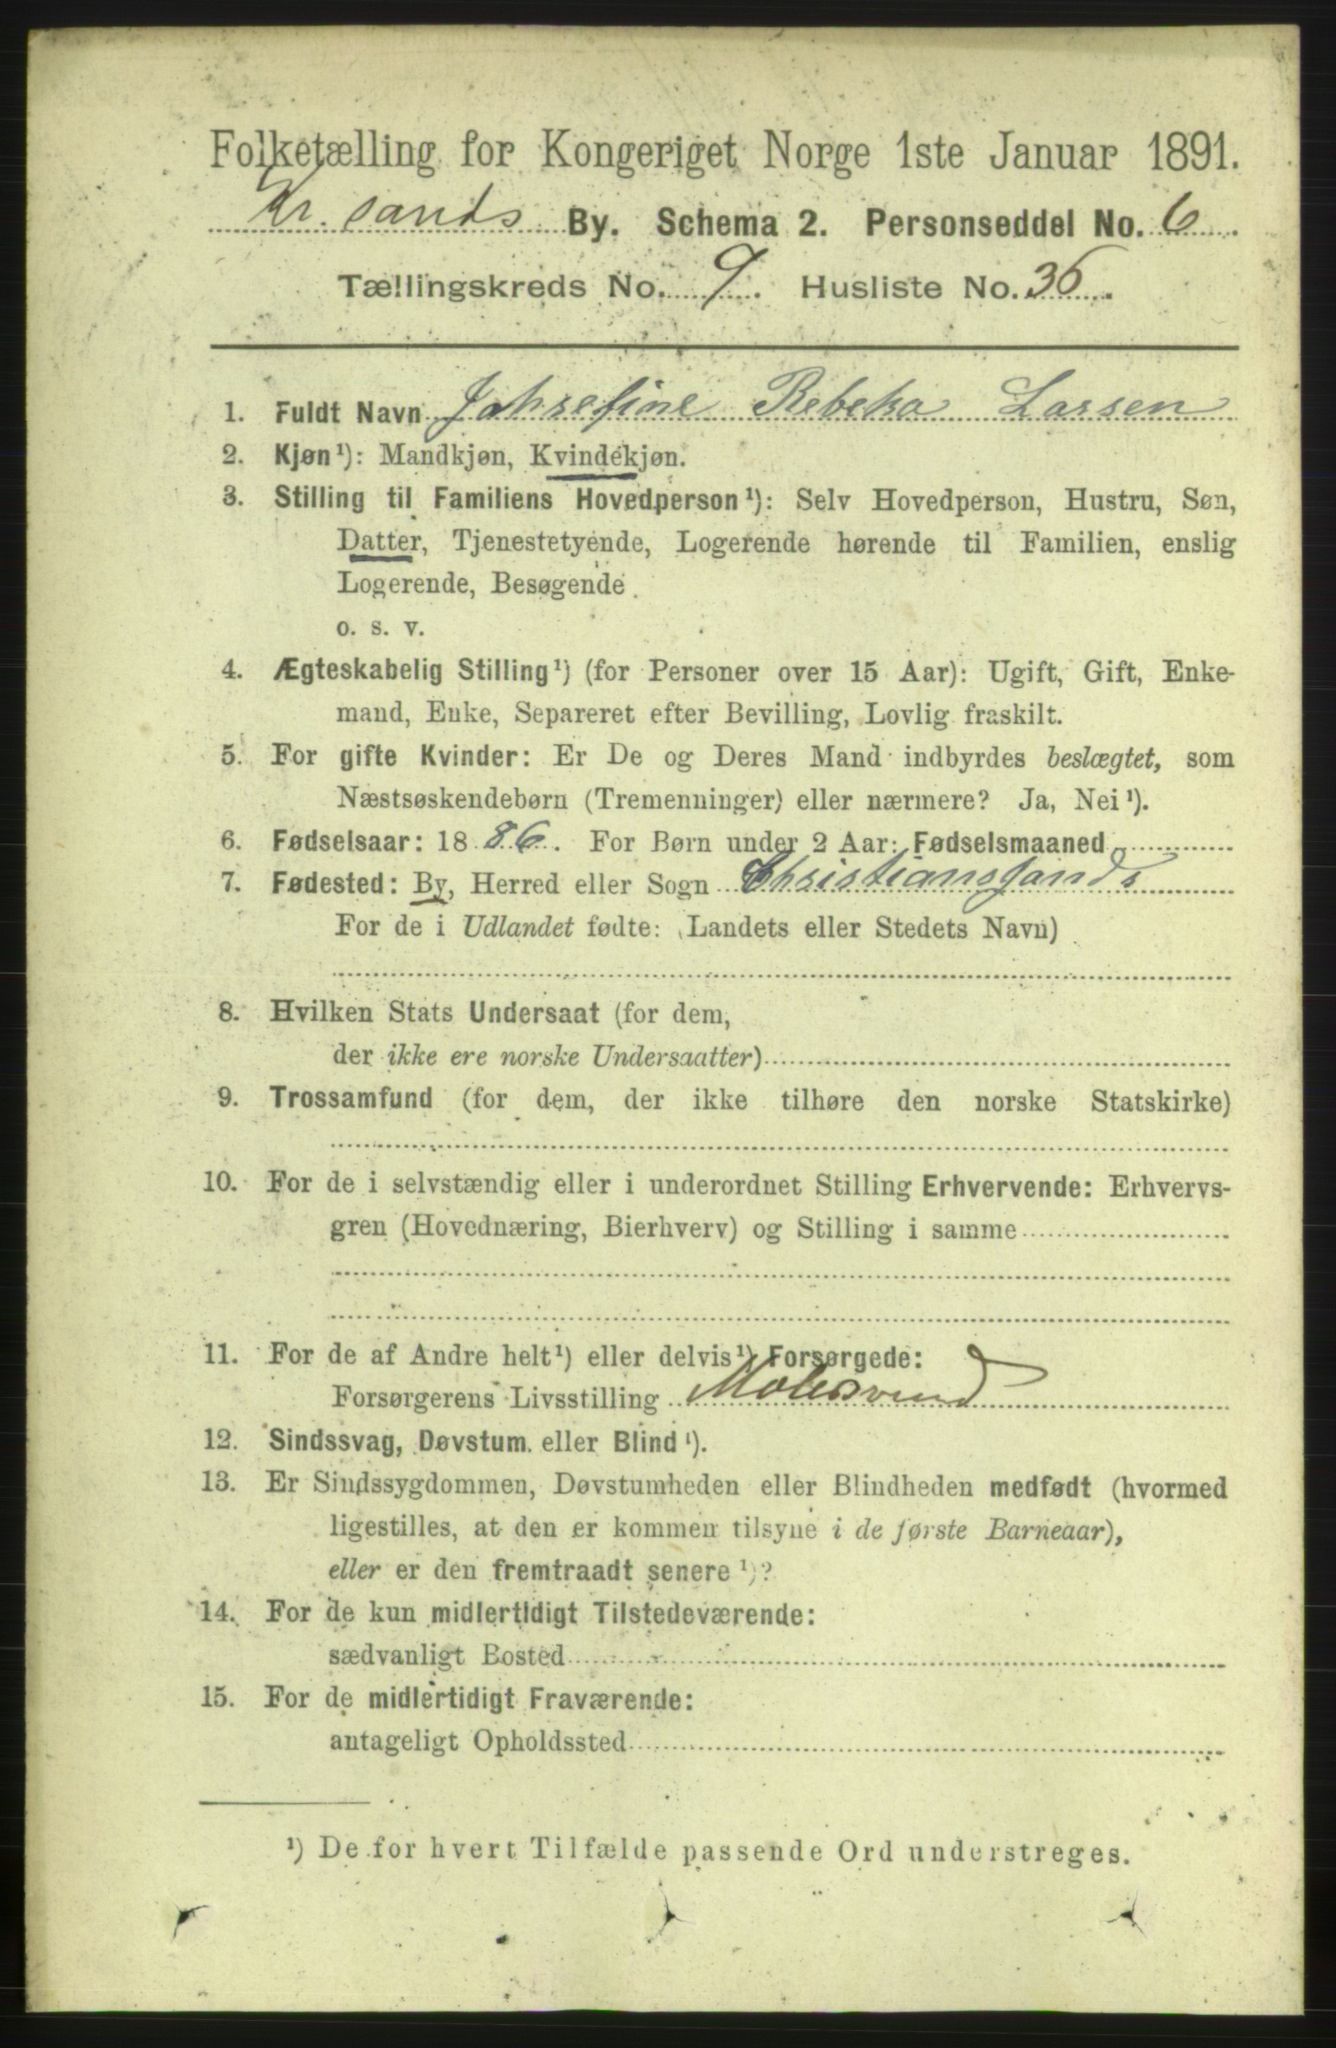 Folketælling for Kongeriget Norge 1ste Januar 1891.
Kr.sands By. Schema 2. Personseddel No. 6.
Tællingskreds No. 9. Husliste No. 36.
1. Fuldt Navn Rebeka Larsen
2. Kjøn ¹): Mandkjøn, Kvindekjøn.
3. Stilling til Familiens Hovedperson ¹): Selv Hovedperson, Hustru, Søn,
Datter, Tjenestetyende, Logerende hørende til Familien, enslig
Logerende, Besøgende
o. s. v.
4. Ægteskabelig Stilling ¹) (for Personer over 15 Aar): Ugift, Gift, Enke-
mand, Enke, Separeret efter Bevilling, Lovlig fraskilt.
5. For gifte Kvinder: Er De og Deres Mand indbyrdes beslægtet, som
Næstsøskendebørn (Tremenninger) eller nærmere? Ja, Nei ¹).
6. Fødselsaar: 1886. For Børn under 2 Aar: Fødselsmaaned
7. Fødested: By, Herred eller Sogn Christianssands
For de i Udlandet fødte: (Landets eller Stedets Navn)
8. Hvilken Stats Undersaat (for dem,
der ikke ere norske Undersaatter)
9. Trossamfund (for dem, der ikke tilhøre den norske Statskirke)
10. For de i selvstændig eller i underordnet Stilling Erhvervende: Erhvervs-
gren (Hovednæring, Bierhverv) og Stilling i samme
11. For de af Andre helt ¹) eller delvis ¹) Forsørgede:
Forsørgerens Livsstilling
12. Sindssvag, Døvstum eller Blind ¹).
13. Er Sindssygdommen, Døvstumheden eller Blindheden medfødt (hvormed
ligestilles, at den er kommen tilsyne i de første Barneaar),
eller er den fremtraadt senere ¹)?
14. For de kun midlertidigt Tilstedeværende:
sædvanligt Bosted
15. For de midlertidigt Fraværende:
antageligt Opholdssted
¹) De for hvert Tilfælde passende Ord understreges.